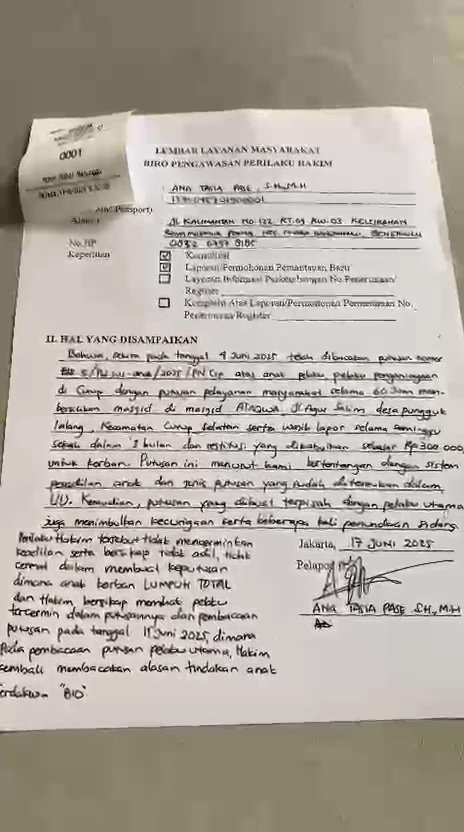 0001
LEMBAR LAYANAN MASYARAKAT
BIRO PENGAWASAN PERILAKU HAKIM
: ANA TASIA PASE, S.H,M.H
JL KALIMANTAN NO.122 RT.09 RW.03 KELURAHAN
No.HP
Keperluan
Konsultasi
Laporan/Permohonan Pemantauan Baru
Layanan Informasi Perkembangan No.Penerimaan/
Register
Komplain Atas Laporan/Permohonan Pemantauan No.
Penerimaan/Register
II. HAL YANG DISAMPAIKAN
Bahwa, pada tanggal 4 Juni 2025 telah dibacakan putusan nomor
5/Pid.sus-anak/2025/PN Crp atas anak pelaku penganiayaan
di Curup dengan putusan pelayanan masyarakat selama 60 Jam mem-
bersihkan masjid di masjid ATAQWA, Jl Agus Salim desa pungguk
lalang, Kecamatan Curup Selatan serta wajib lapor selama seminggu
sekali dalam 3 bulan dan restitusi yang dikabulkan sebesar Rp 300.000,
untuk korban. Putusan ini menurut kami bertentangan dengan sistem
peradilan anak dan jenis putusan yang sudah ditentukan dalam
UU. Kemudian, putusan yang dibuat terpisah dengan pelaku utama
juga menimbulkan kecurigaan serta beberapa kali penundaan sidang.
Perilaku Hakim tersebut tidak mencerminkan
keadilan serta bersikap tidak adil, tidak
cermat dalam membuat keputusan
dimana anak korban LUMPUH TOTAL
dan Hakim, bersikap memihak pelaku
tercermin dalam putusannya dan pembacaan
putusan pada tanggal 11 Juni 2025, dimana
Pada pembacaan putusan pelaku utama, Hakim
kembali membacakan alasan tindakan anak
terdakwa "BIO"
Jakarta, 17 JUNI 2025
Pelapor
ANA TASIA PASE S.H., M.H